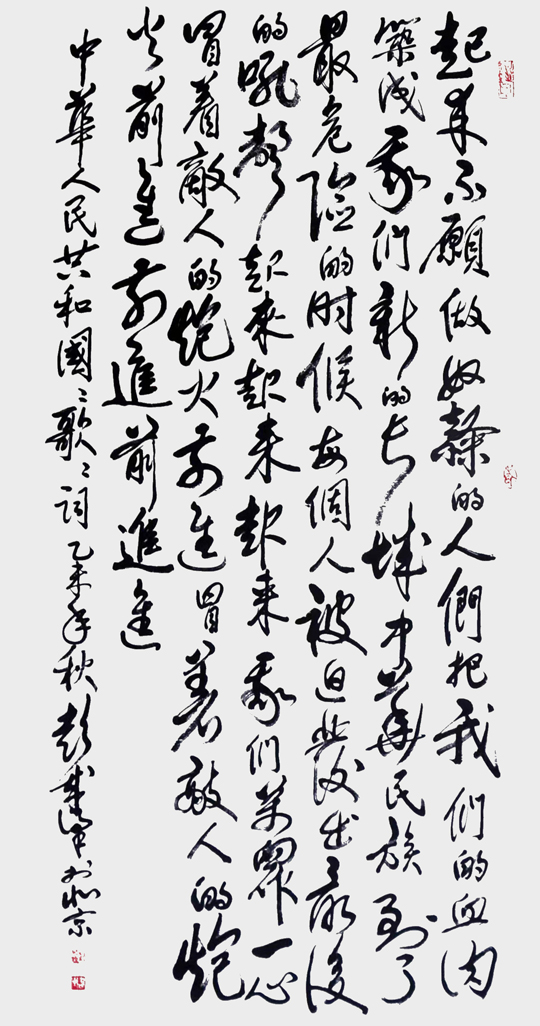 起来不願做奴隸的人們把我們的血肉
築成我們新的长城中華民族到了
最危险的时候每個人被迫发出最後
的吼聲起来起来起来我们萬眾一心
冒着敵人的炮火前進冒着敵人的炮
火前進前進前進進
中華人民共和國〻歌〻詞乙未年秋彭於北京